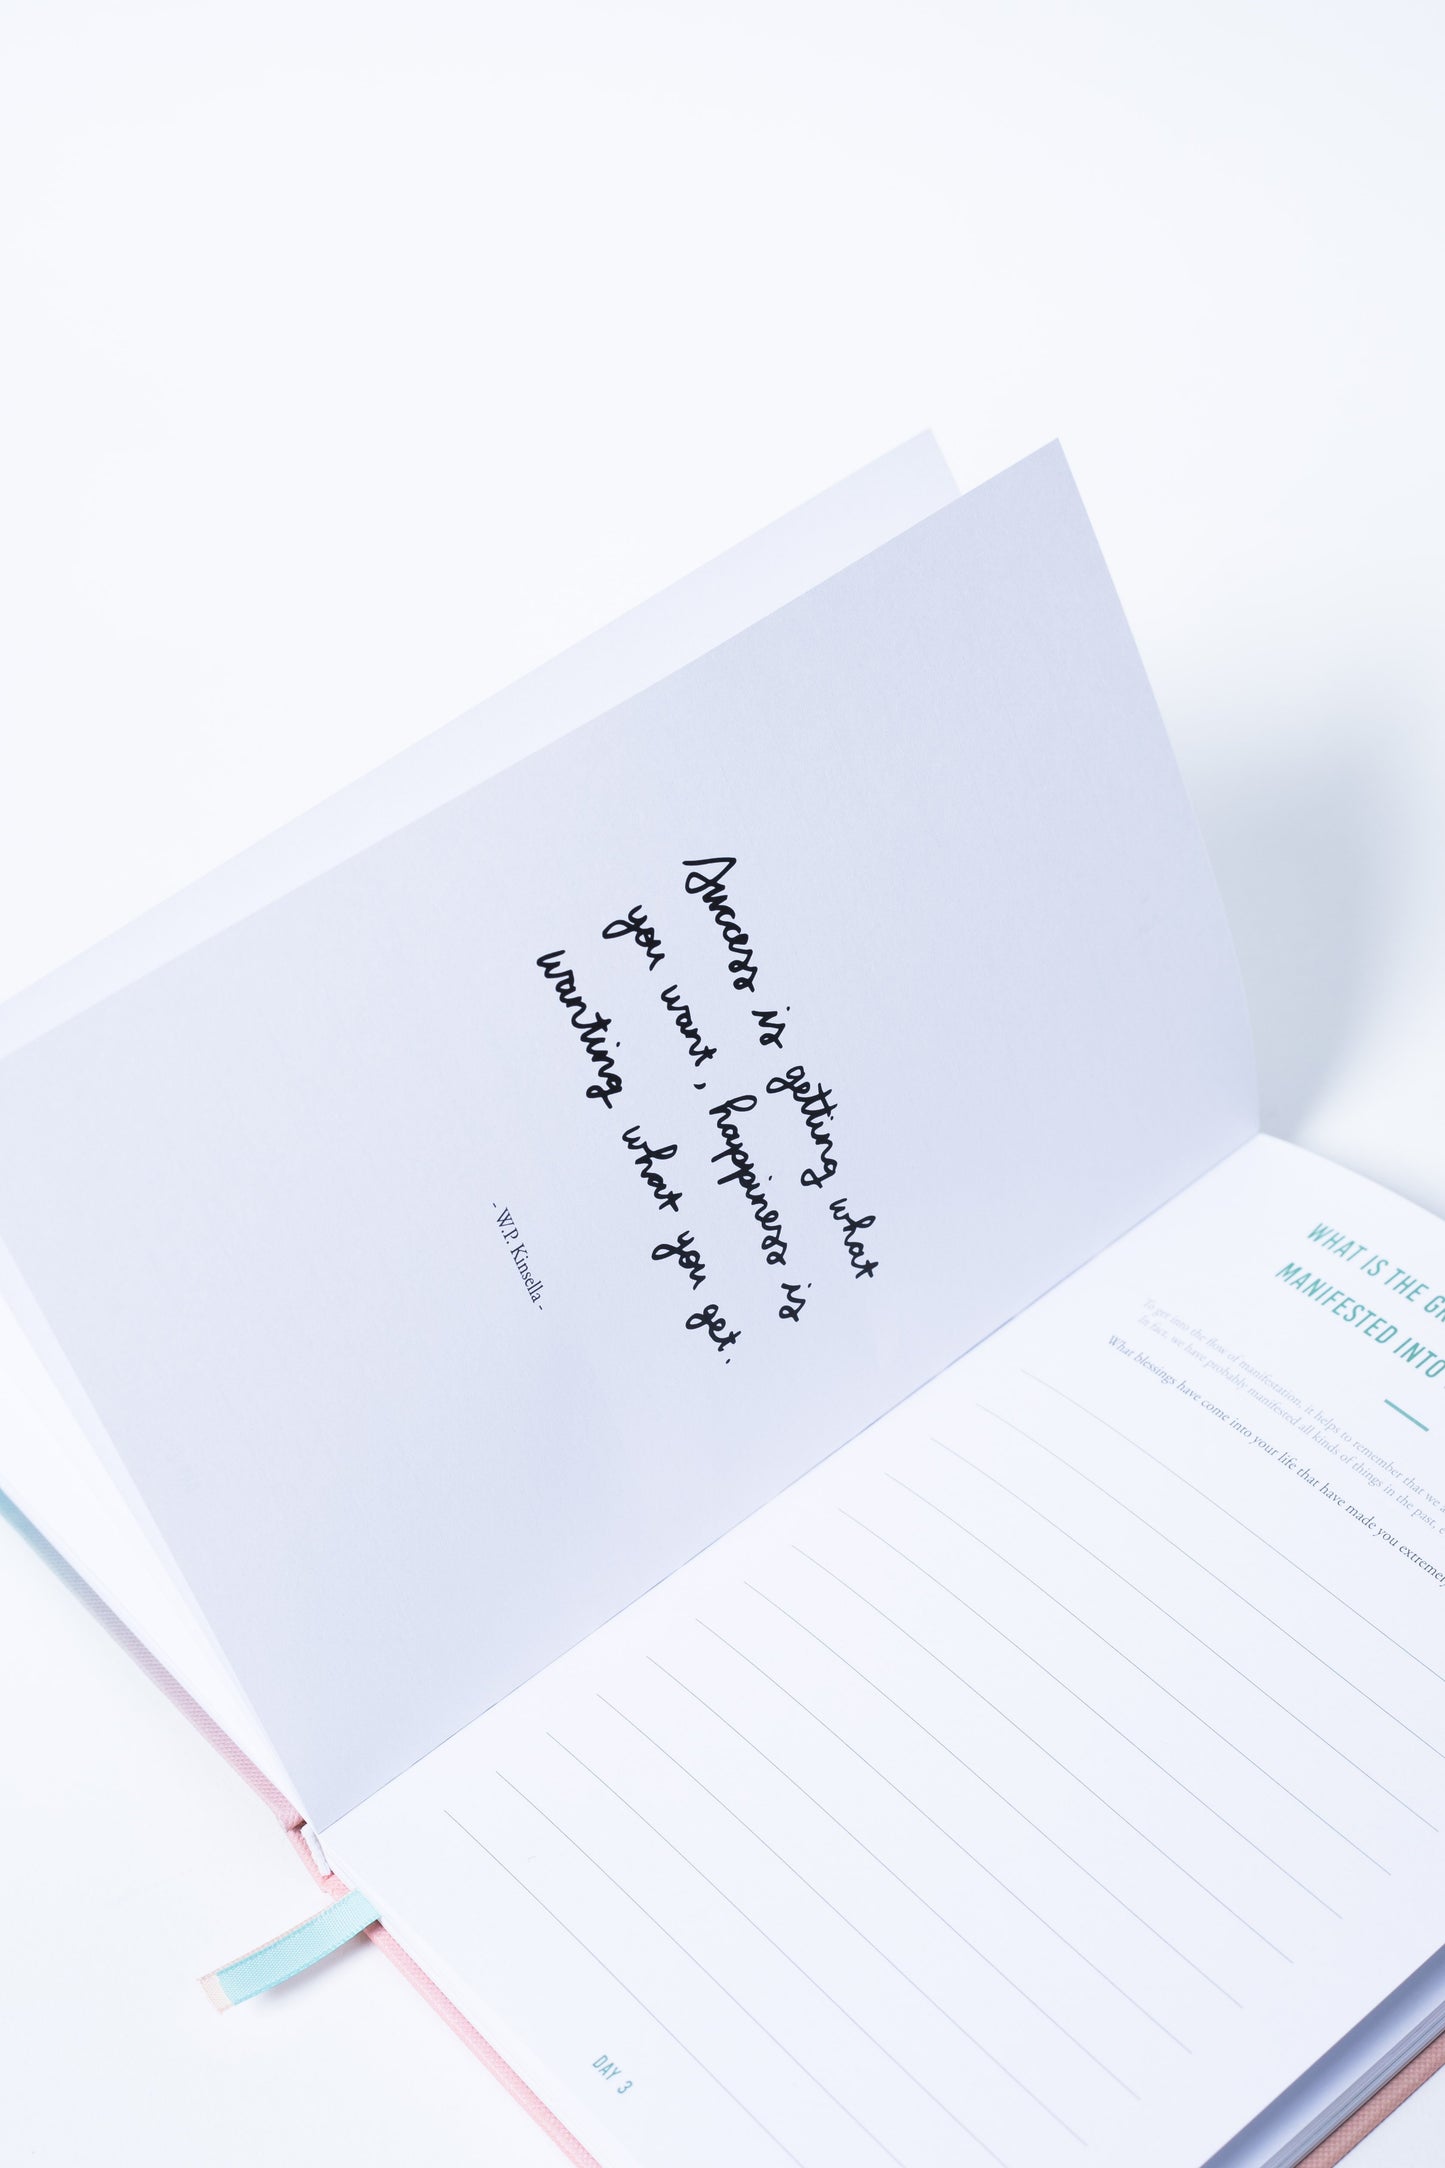 Success is getting what
you want, happiness is
wanting what you get.
- W.P. Kinsella -
WHAT IS THE
MANIFESTED INTO
To get into the flow of manifestation, it helps to remember that we
In fact, we have probably manifested all kinds of things in the past,
What blessings have come into your life that have made you extremely
DAY 3